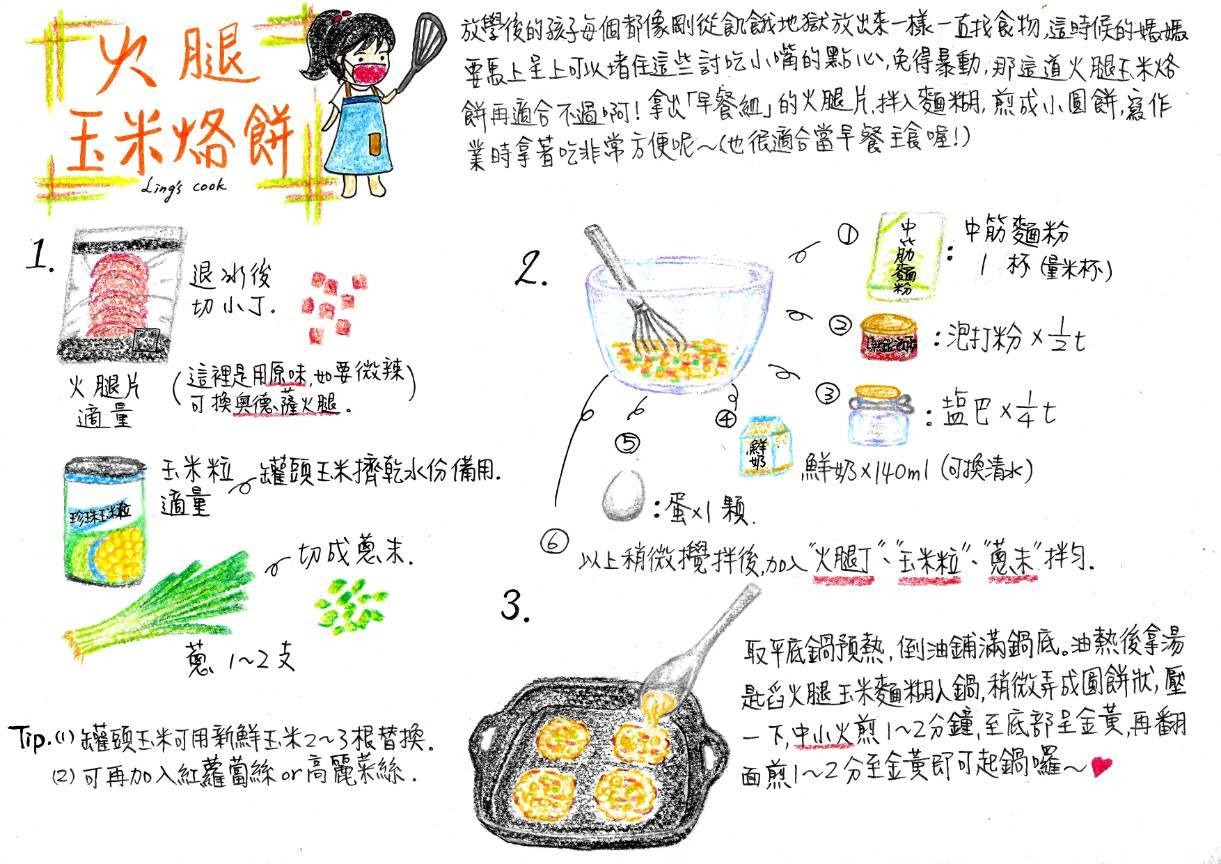 火腿
玉米烙餅
Ling's cook
放學後的孩子每個都像剛從飢餓地獄放出來一樣一直找食物,這時候的媽媽
要馬上呈上可以堵住這些討吃小嘴的點心,免得暴動,那這道火腿玉米烙
餅再適合不過啊!拿出「早餐組」的火腿片,拌入麵糊,煎成小圓餅,寫作
業時拿著吃非常方便呢~(也很適合當早餐主食喔!)
1.
退冰後
切小丁.
火腿片
適量
(這裡是用原味,如要微辣)
可換奧德薩火腿.
珍珠玉米粒
玉米粒
適量
罐頭玉米擠乾水份備用.
切成蔥末.
蔥1~2支
Tip.(1)罐頭玉米可用新鮮玉米2~3根替換.
(2)可再加入紅蘿蔔絲or高麗菜絲.
2.
①
中筋麵粉
:中筋麵粉
1杯(量米杯)
②
:泡打粉×1/2t
③
:盐巴×1/4t
④
鮮奶
鮮奶×140ml(可換清水)
⑤
:蛋×1顆.
⑥
以上稍微攪拌後,加入"火腿丁"、"玉米粒"、"蔥末"拌勻.
3.
取平底鍋預熱,倒油鋪滿鍋底。油熱後拿湯
匙舀火腿玉米麵糊入鍋,稍微弄成圓餅狀,壓
一下,中小火煎1~2分鐘,至底部呈金黃,再翻
面煎1~2分至金黃即可起鍋囉~